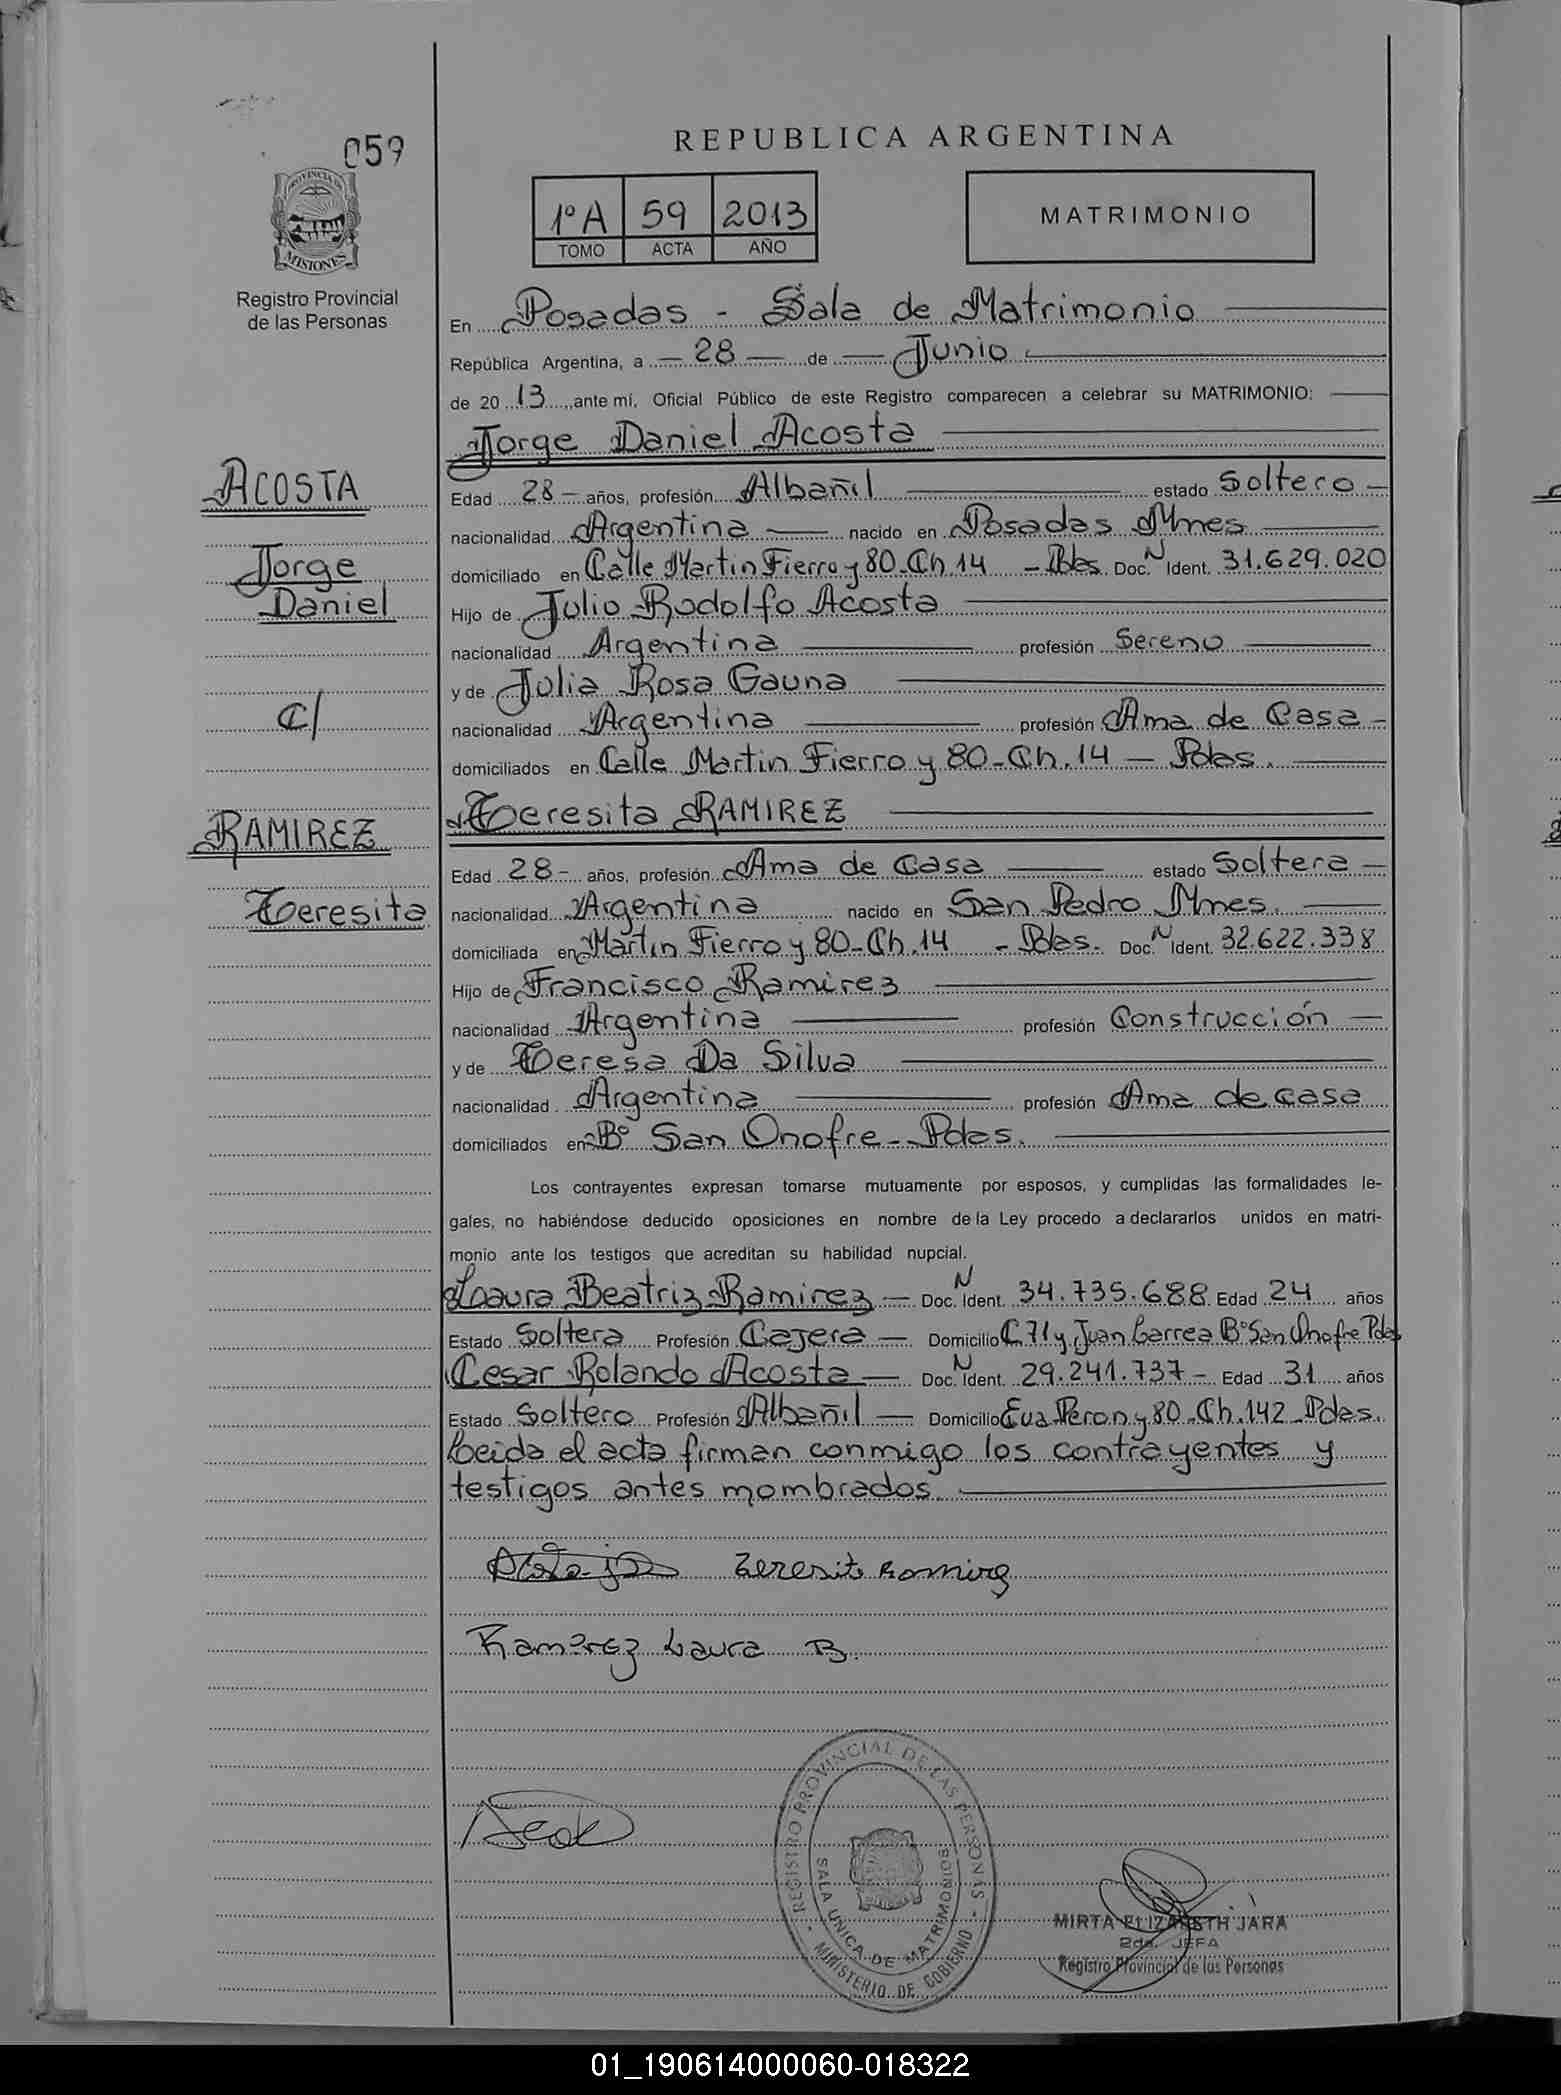 059
PROVINCIA DE
MISIONES
Registro Provincial
de las Personas
REPUBLICA ARGENTINA
1º A 59 2013
TOMO ACTA AÑO
MATRIMONIO
En Posadas - Sala de Matrimonio
República Argentina, a 28 de Junio
de 20 13 ante mí, Oficial Público de este Registro comparecen a celebrar su MATRIMONIO:
Jorge Daniel Acosta
ACOSTA
Jorge
Daniel
C/
RAMIREZ
Teresita
Edad 28 - años, profesión Albañil estado Soltero -
nacionalidad Argentina nacido en Posadas Mnes
domiciliado en Calle Martin Fierro y 80-Ch 14 - Pdas. Doc. N Ident. 31.629.020
Hijo de Julio Rodolfo Acosta
nacionalidad Argentina profesión Sereno
y de Julia Rosa Gauna
nacionalidad Argentina profesión Ama de Casa -
domiciliados en Calle Martin Fierro y 80-Ch.14 - Pdas.
Teresita RAMIREZ
Edad 28 - años, profesión Ama de Casa estado Soltera -
nacionalidad Argentina nacido en San Pedro Mnes.
domiciliada en Martin Fierro y 80-Ch.14 - Pdas. Doc. N Ident. 32.622.338
Hijo de Francisco Ramirez
nacionalidad Argentina profesión Construcción -
y de Teresa Da Silva
nacionalidad Argentina profesión Ama de casa
domiciliados en Bº San Onofre - Pdas.
Los contrayentes expresan tomarse mutuamente por esposos, y cumplidas las formalidades le-
gales, no habiéndose deducido oposiciones en nombre de la Ley procedo a declararlos unidos en matri-
monio ante los testigos que acreditan su habilidad nupcial.
Laura Beatriz Ramirez - Doc. N Ident. 34.735.688 Edad 24 años
Estado Soltera Profesión Cajera - Domicilio C.71 y Juan Larrea Bº San Onofre Pdas
Cesar Rolando Acosta - Doc. N Ident. 29.241.737 - Edad 31 años
Estado Soltero Profesión Albañil - Domicilio Eva Peron y 80-Ch.142-Pdas.
Leida el acta firman conmigo los contrayentes y
testigos antes mombrados.
Teresita Ramirez
Ramirez Laura B.
REGISTRO PROVINCIAL DE LAS PERSONAS
SALA UNICA DE MATRIMONIOS
MINISTERIO DE GOBIERNO
MIRTA ELIZABETH JARA
2da. JEFA
Registro Provincial de las Personas
01_190614000060-018322